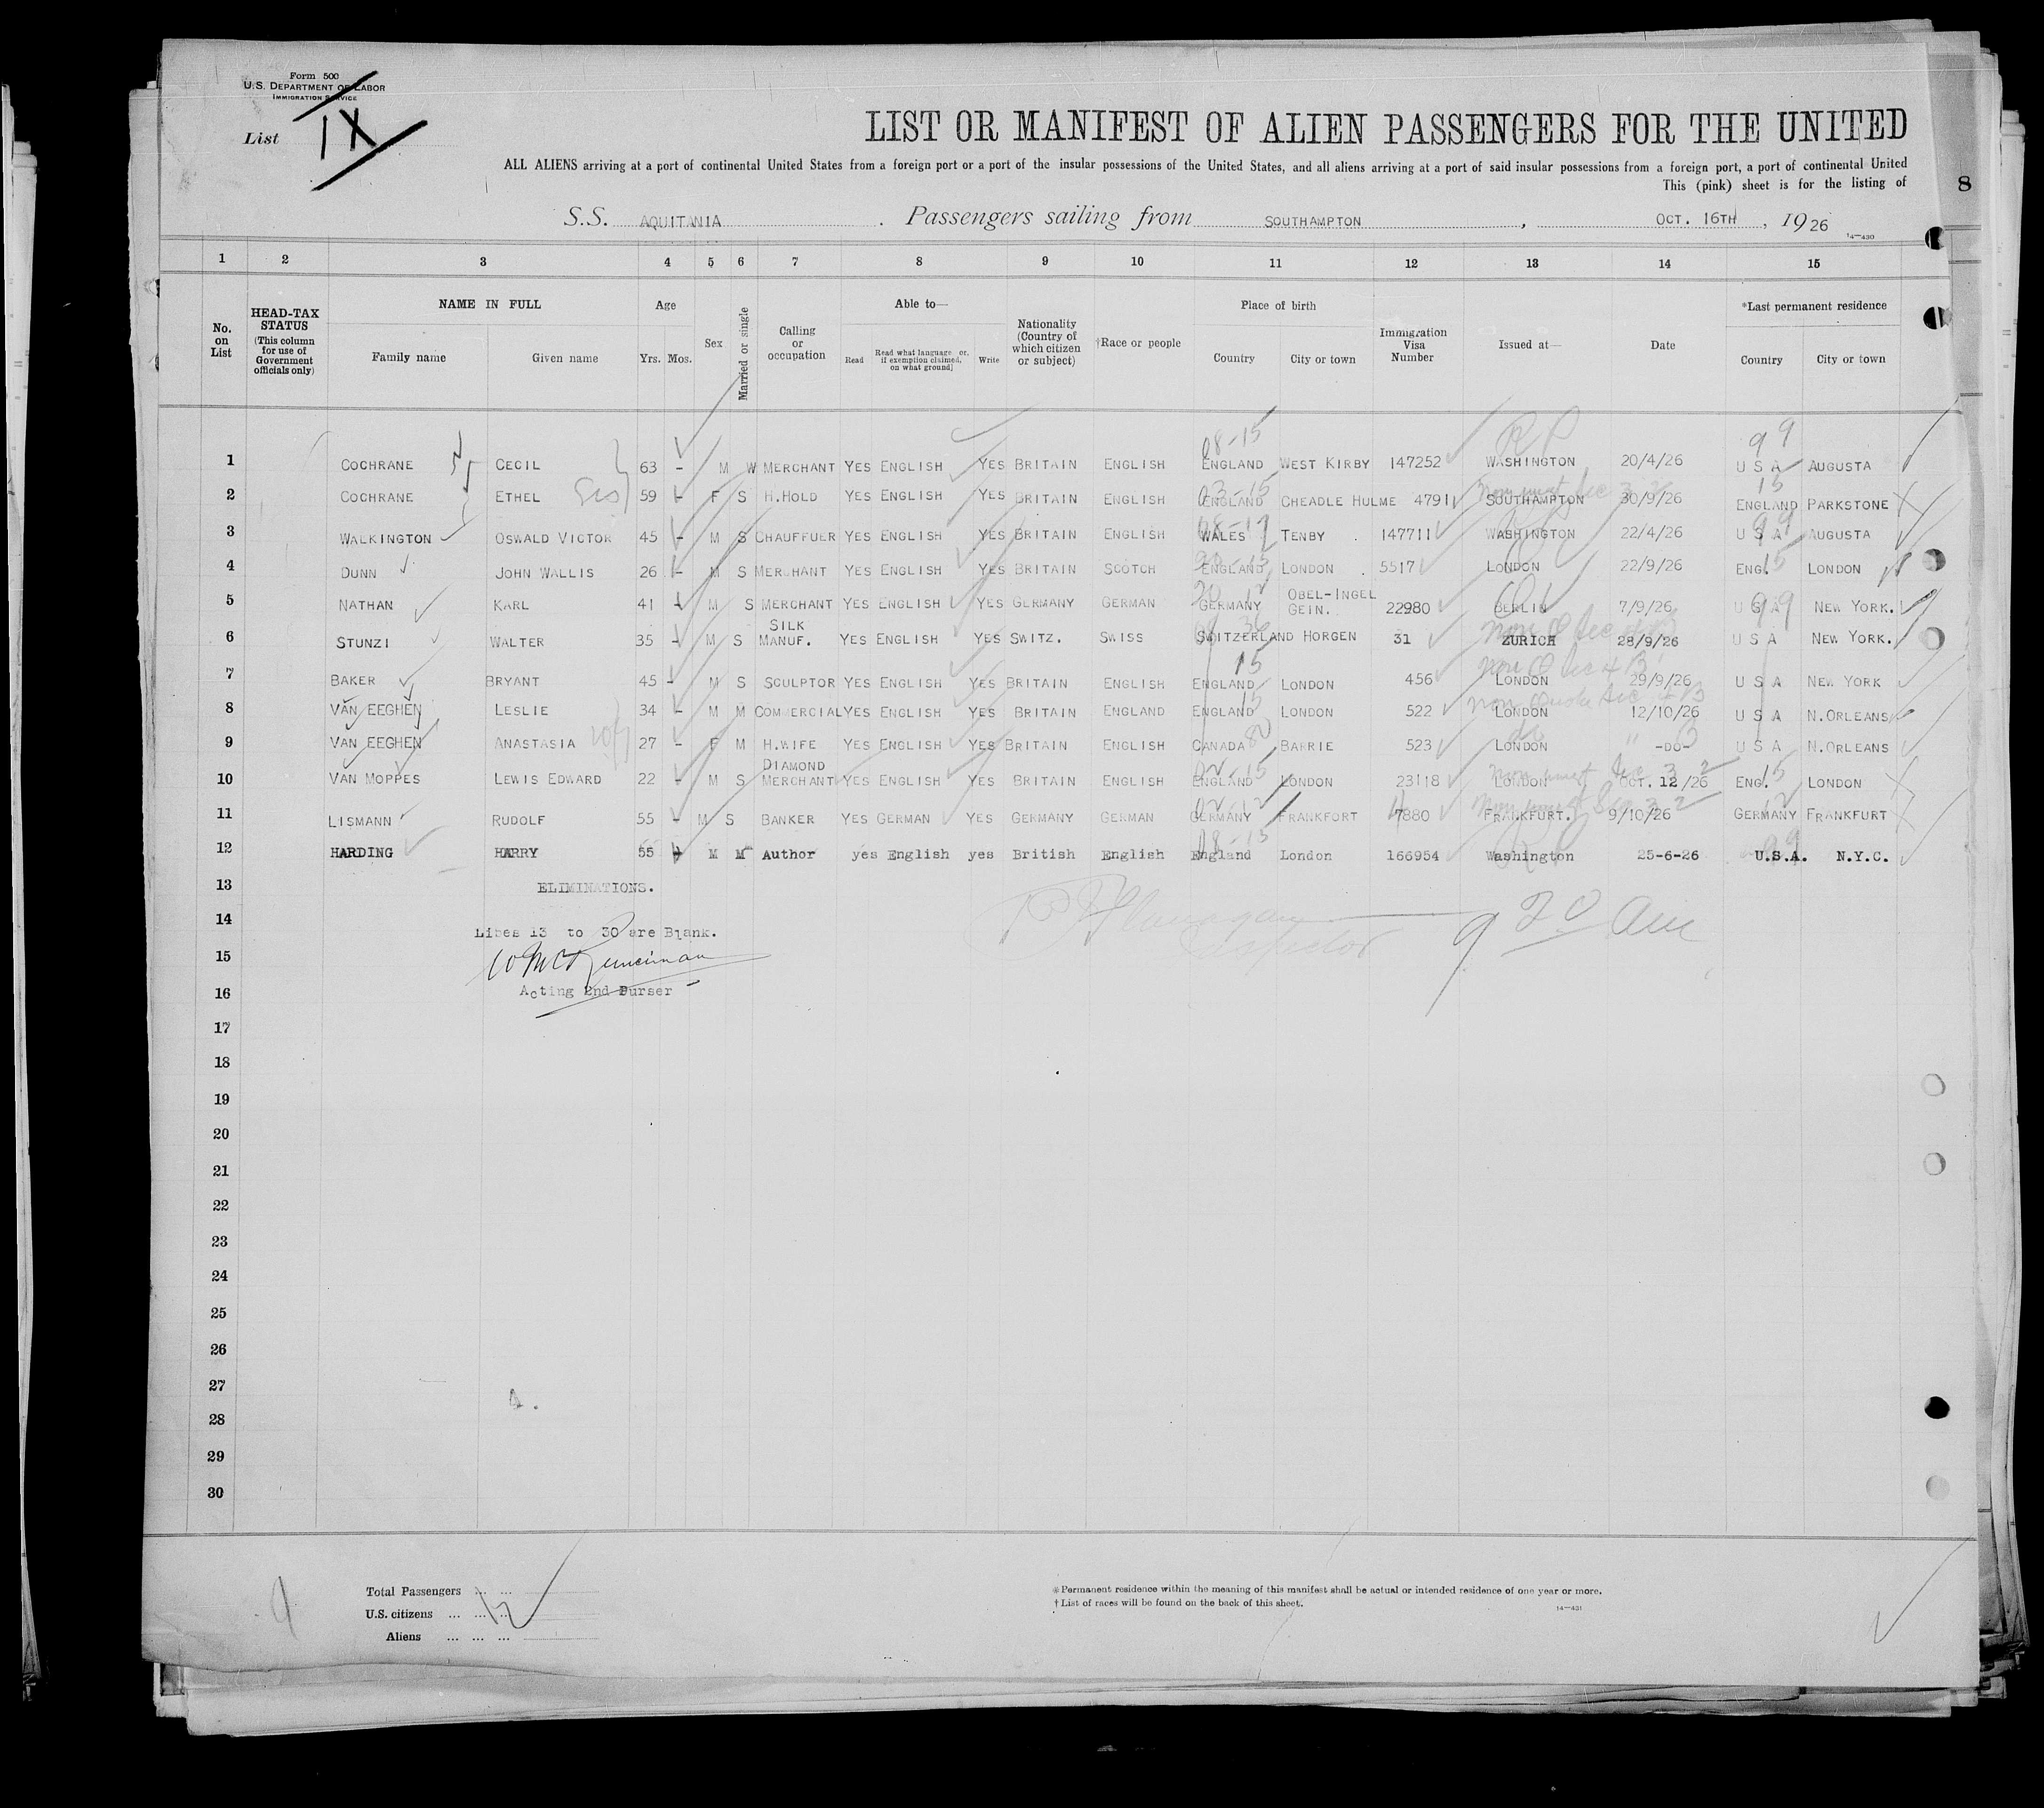 Form 500
U.S. DEPARTMENT OF LABOR
IMMIGRATION SERVICE
List IX
LIST OR MANIFEST OF ALIEN PASSENGERS FOR THE UNITED
ALL ALIENS arriving at a port of continental United States from a foreign port or a port of the insular possessions of the United States, and all aliens arriving at a port of said insular possessions from a foreign port, a port of continental United
This (pink) sheet is for the listing of
8
S.S. AQUITANIA . Passengers sailing from SOUTHAMPTON , OCT. 16TH , 1926
14—430
1 2 3 4 5 6 7 8 9 10 11 12 13 14 15
No. on List
HEAD-TAX STATUS (This column for use of Government officials only)
NAME IN FULL
Family name Given name
Age
Yrs. Mos.
Sex
Married or single
Calling or occupation
Able to—
Read Read what language or, if exemption claimed, on what ground] Write
Nationality (Country of which citizen or subject)
†Race or people
Place of birth
Country City or town
Immigration Visa Number
Issued at—
Date
*Last permanent residence
Country City or town
08-15 RP 99
1 COCHRANE CECIL 63 - M W MERCHANT YES ENGLISH YES BRITAIN ENGLISH ENGLAND WEST KIRBY 147252 WASHINGTON 20/4/26 U S A AUGUSTA
03-15 15
2 COCHRANE ETHEL Sis 59 - F S H.HOLD YES ENGLISH YES BRITAIN ENGLISH ENGLAND CHEADLE HULME 4791 SOUTHAMPTON 30/9/26 ENGLAND PARKSTONE
99
3 WALKINGTON OSWALD VICTOR 45 - M S CHAUFFUER YES ENGLISH YES BRITAIN ENGLISH WALES TENBY . 147711 WASHINGTON 22/4/26 U S A AUGUSTA
15
4 DUNN JOHN WALLIS 26 - M S MERCHANT YES ENGLISH YES BRITAIN SCOTCH ENGLAND LONDON . 5517 LONDON 22/9/26 ENG. LONDON
99
5 NATHAN KARL 41 - M S MERCHANT YES ENGLISH YES GERMANY GERMAN GERMANY OBEL-INGEL GEIN. 22980 BERLIN 7/9/26 U S A NEW YORK.
6 STUNZI WALTER 35 - M S SILK MANUF. YES ENGLISH YES SWITZ. SWISS SWITZERLAND HORGEN 31 ZURICH 28/9/26 U S A NEW YORK.
15
7 BAKER BRYANT 45 - M S SCULPTOR YES ENGLISH YES BRITAIN ENGLISH ENGLAND LONDON 456 LONDON 29/9/26 U S A NEW YORK
15
8 VAN EEGHEN LESLIE 34 - M M COMMERCIAL YES ENGLISH YES BRITAIN ENGLAND ENGLAND LONDON 522 LONDON 12/10/26 U S A N.ORLEANS
do
9 VAN EEGHEN ANASTASIA 27 - F M H.WIFE YES ENGLISH YES BRITAIN ENGLISH CANADA BARRIE 523 LONDON -DO- U S A N.ORLEANS
02-15 15
10 VAN MOPPES LEWIS EDWARD 22 - M S DIAMOND MERCHANT YES ENGLISH YES BRITAIN ENGLISH ENGLAND LONDON 23118 LONDON OCT. 12/26 ENG. LONDON
02-12 12
11 LISMANN RUDOLF 55 - M S BANKER YES GERMAN YES GERMANY GERMAN GERMANY FRANKFORT 7880 FRANKFURT. 9/10/26 GERMANY FRANKFURT
99
12 HARDING HARRY 55 - M M Author yes English yes British English England London 166954 Washington 25-6-26 U.S.A. N.Y.C.
13 ELIMINATIONS.
14 Lines 13 to 30 are Blank.
9 20 am
Inspector
15
16 Acting 2nd Purser
17
18
19
20
21
22
23
24
25
26
27
28
29
30
Total Passengers ... ...
U.S. citizens ... ... ... 12
Aliens ... ... ...
9
*Permanent residence within the meaning of this manifest shall be actual or intended residence of one year or more.
†List of races will be found on the back of this sheet.
14—431